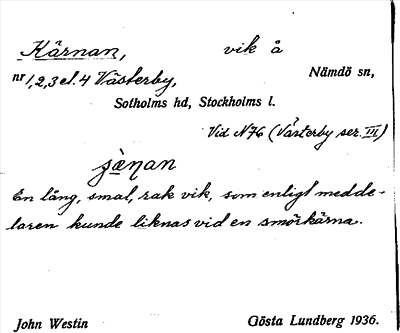 Kärnan, vik å
nr 1,2,3 el. 4 Västerby, Nämdö sn,
Sotholms hd, Stockholms l.
Vid N76 (Västerby ser. III)
jæ̀nan
En lång, smal, rak vik, som enligt medde-
laren kunde liknas vid en smörkärna.
John Westin Gösta Lundberg 1936.